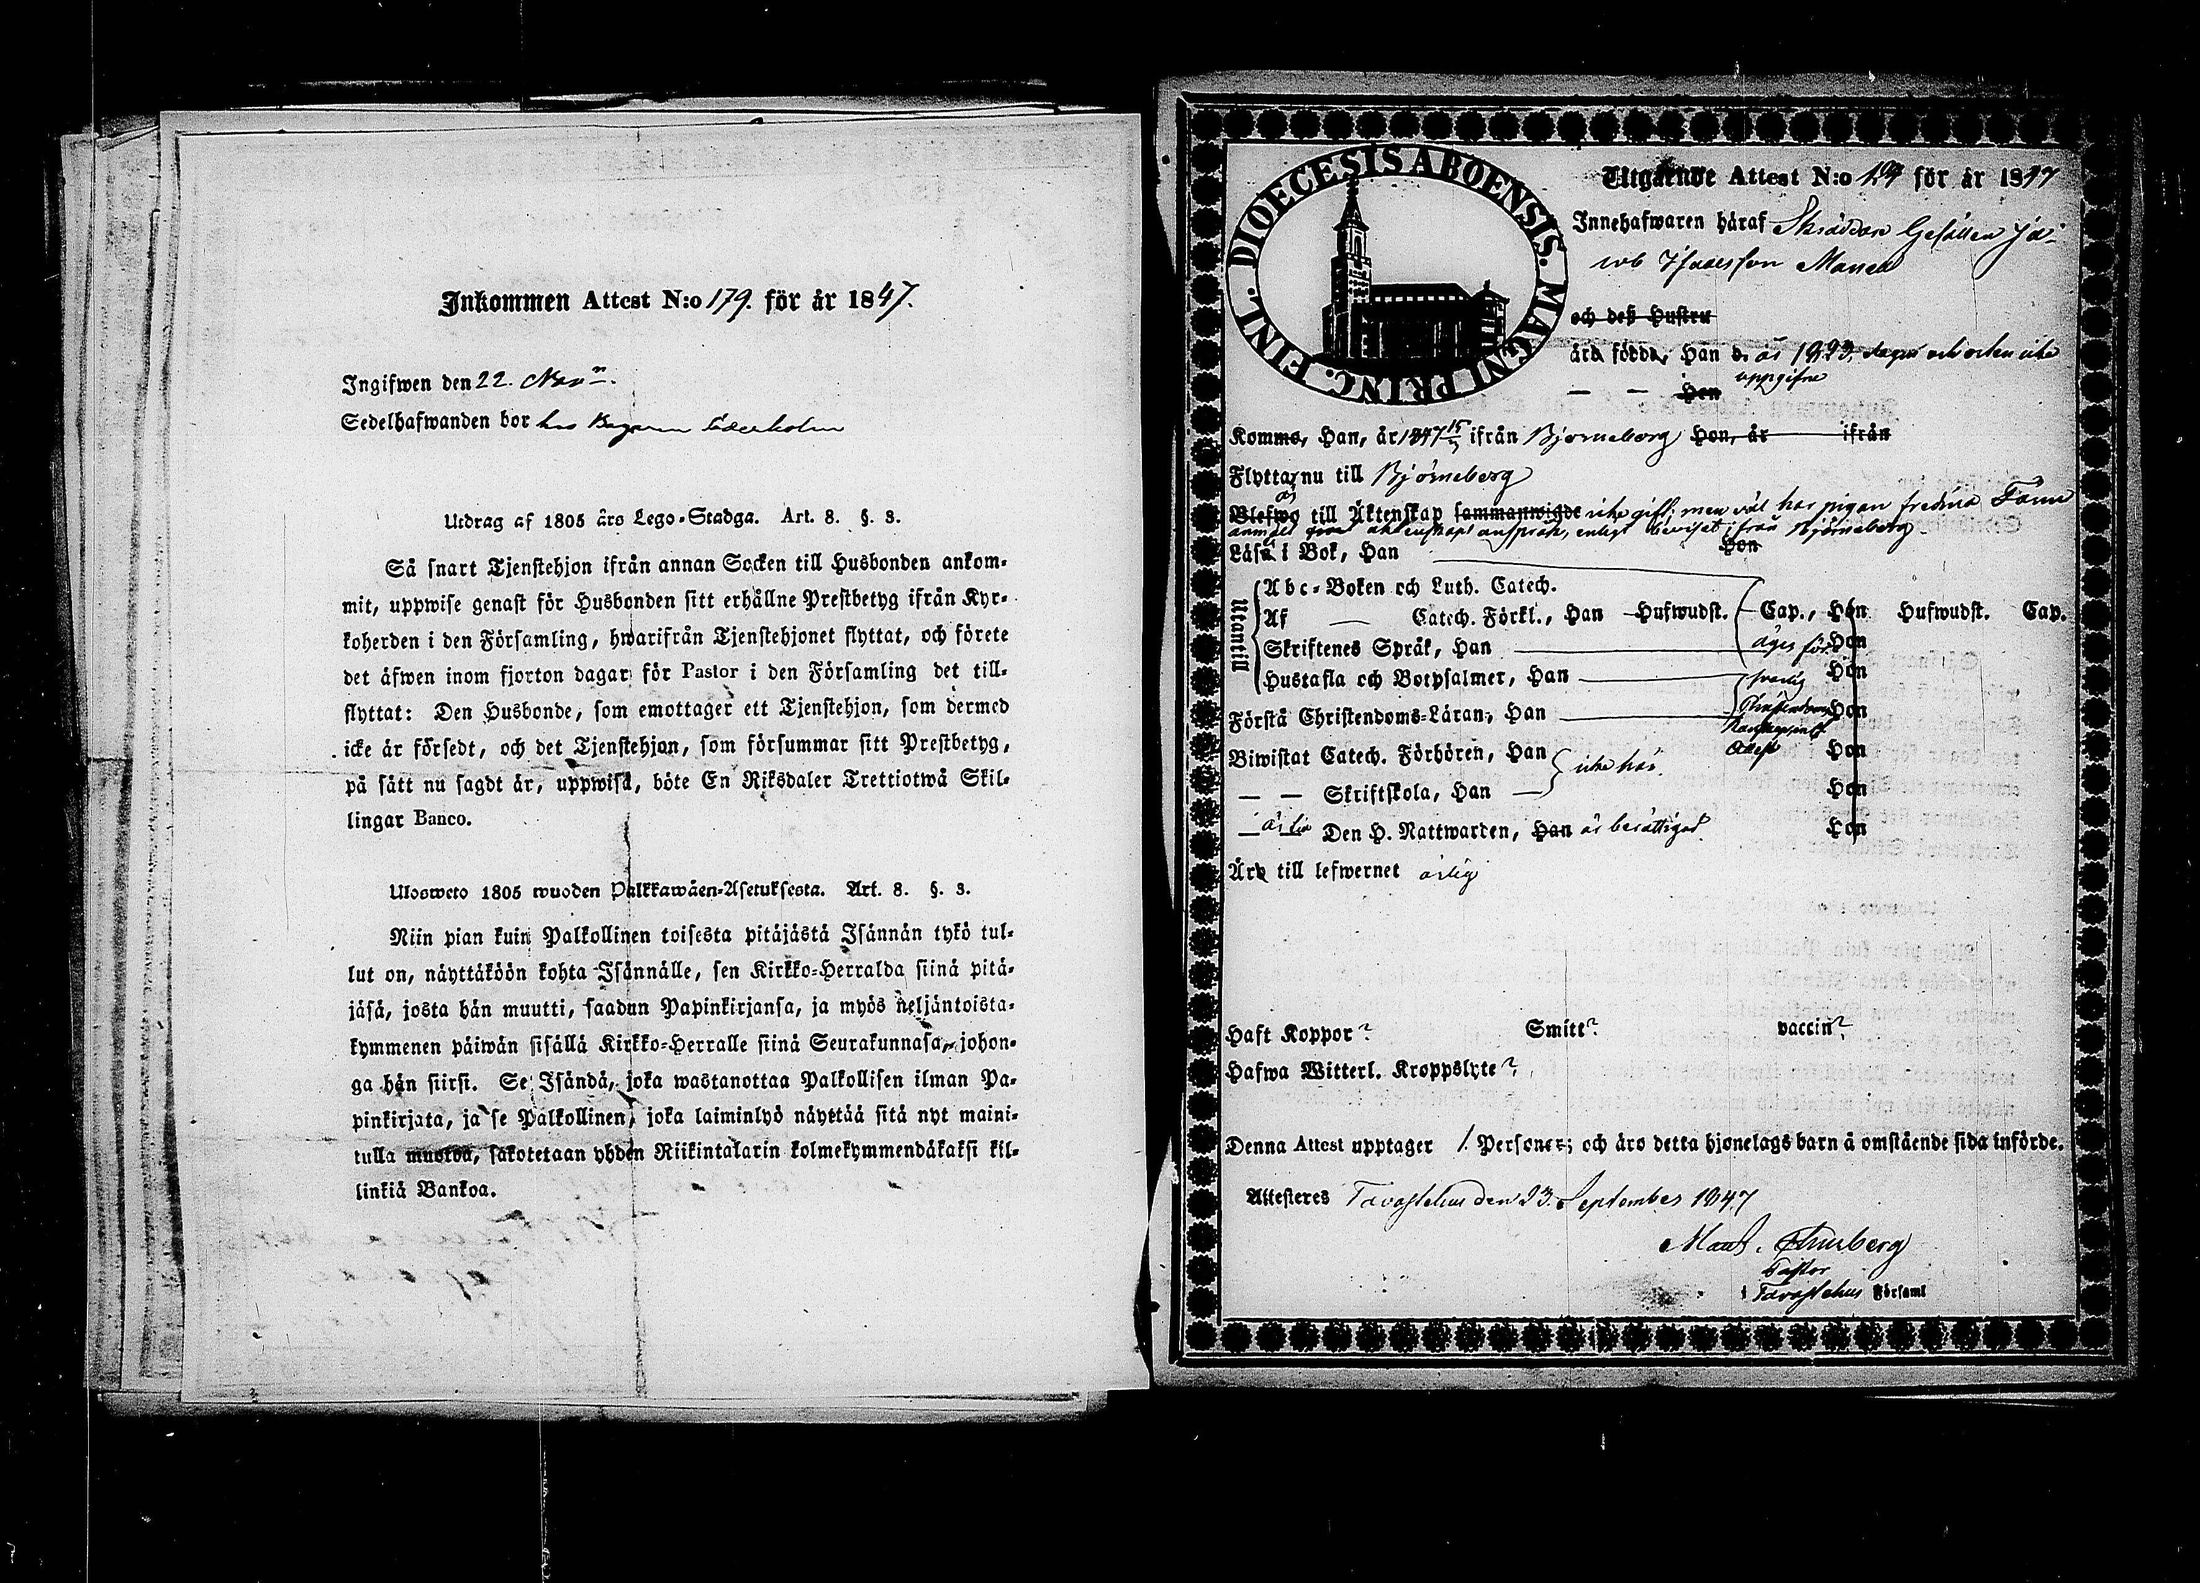 Inkommen Attest N:o 179. för år 1847.
Ingifwen den 22. Nov:r.
Sedelhafwanden bor hos
Utdrag af 1805 års Lego-Stadga. Art. 8. §. 3.
Så snart Tjenstehjon ifrån annan Socken till Husbonden ankom-
mit, uppwise genast för Husbonden sitt erhållne Prestbetyg ifrån Kyr-
koherden i den Församling, hwarifrån Tjenstehjonet flyttat, och förete
det äfwen inom fjorton dagar för Pastor i den Församling det till-
flyttat: Den Husbonde, som emottager ett Tjenstehjon, som dermed
icke är försedt, och det Tjenstehjon, som försummar sitt Prestbetyg,
på sätt nu sagdt är, uppwisa, böte En Riksdaler Trettiotwå Skil-
lingar Banco.
Ulosweto 1805 wuoden Palkkawäen-Asetuksesta. Art. 8. §. 3.
Niin pian kuin Palkollinen toisesta pitäjästä Isännän tykö tul-
lut on, näyttäköön kohta Isännälle, sen Kirkko-Herralda siinä pitä-
jäsä, josta hän muutti, saadun Papinkirjansa, ja myös neljäntoista-
kymmenen päiwän sisällä Kirkko-Herralle siinä Seurakunnasa, johon-
ga hän siirsi. Se Isändä, joka wastanottaa Palkollisen ilman Pa-
pinkirjata, ja se Palkollinen, joka laiminlyö näyttää sitä nyt maini-
tulla muodon, sakotetaan yhden Riikintalarin kolmekymmendäkaksi kil-
linkiä Bankoa.
DIOECESIS ABOENSIS. MAGNI PRINC. FINL.
Utgående Attest N:o 124 för år 1847
Innehafwaren häraf Skräddare Gesällen Ja-
cob Isacsson
och deß Hustru
äro födde, Han d. år 1823, dagen och orten icke
uppgifne
— — Hon
Komme, Han, år 1847 15/5 ifrån Björneborg Hon, år ifrån
Flyttar nu till Björneborg
är
Blefwo till Äktenskap sammanwigde icke gift; men väl har pigan Fredrica
äktenskaps anspråk, enligt beviset ifrån Björneborg
Läsa i Bok, Han Hon
Utantill
Abc-Boken och Luth. Catech.
Af — Catech. Förkl., Han Hufwudst. Cap., Hon Hufwudst. Cap.
Skriftenes Språk, Han Hon
Hustafla och Botpsalmer, Han Hon
Förstå Christendoms-Läran, Han Hon
Biwistat Catech. Förhören, Han icke här. Hon
— — Skriftskola, Han Hon
— — Den H. Nattwarden, Han är berättigad Hon
Äro till lefwernet ärlig
Haft Koppor? Smitt? vaccin?
Hafwa Witterl. Kroppslyte?
Denna Attest upptager 1. Personer; och äro detta hjonelags barn å omstående sida införde.
Attesteres Tavastehus den 23. September 1847
Thurberg
Pastor
i Tavastehus Församl